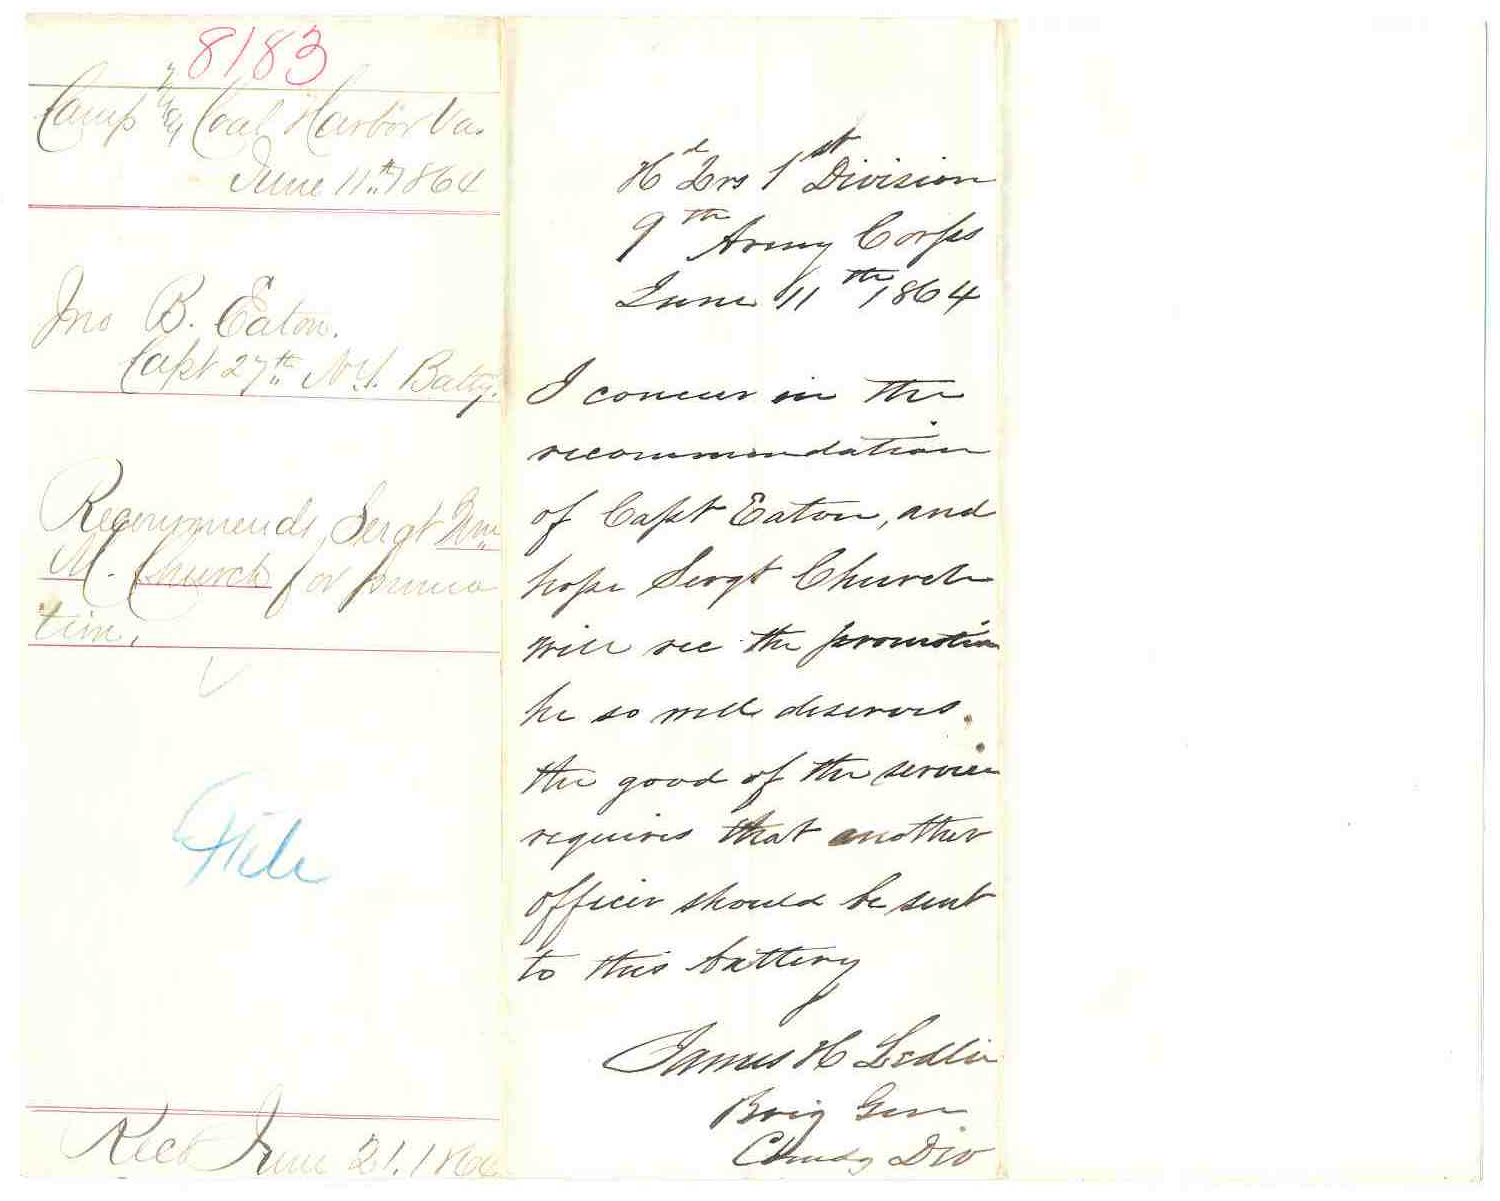 8183
Camp near Coal Harbor Va.
June 11th 1864
Jno B. Eaton.
Capt 27th N.Y. Batty.
Recommends Sergt Wm
M. Church for promo
tion.
File
Recd June 21. 1864
Hd Qrs 1st Division
9th Army Corps
June 11th 1864
I concur in the
recommendation
of Capt Eaton, and
hope Sergt Church
will rec the promotion
he so well deserves.
the good of the service
requires that another
officer should be sent
to this battery
James H Ledlie
Brig Gen
Cmdg Div